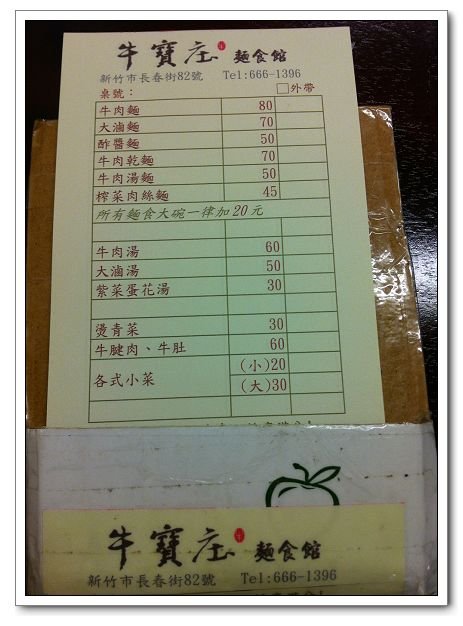 牛寶庄 麵食館
新竹市長春街82號 Tel:666-1396
桌號： □外帶
牛肉麵 80
大滷麵 70
酢醬麵 50
牛肉乾麵 70
牛肉湯麵 50
榨菜肉絲麵 45
所有麵食大碗一律加20元
牛肉湯 60
大滷湯 50
紫菜蛋花湯 30
燙青菜 30
牛腱肉、牛肚 60
各式小菜 (小)20
(大)30
牛寶庄 麵食館
新竹市長春街82號 Tel:666-1396